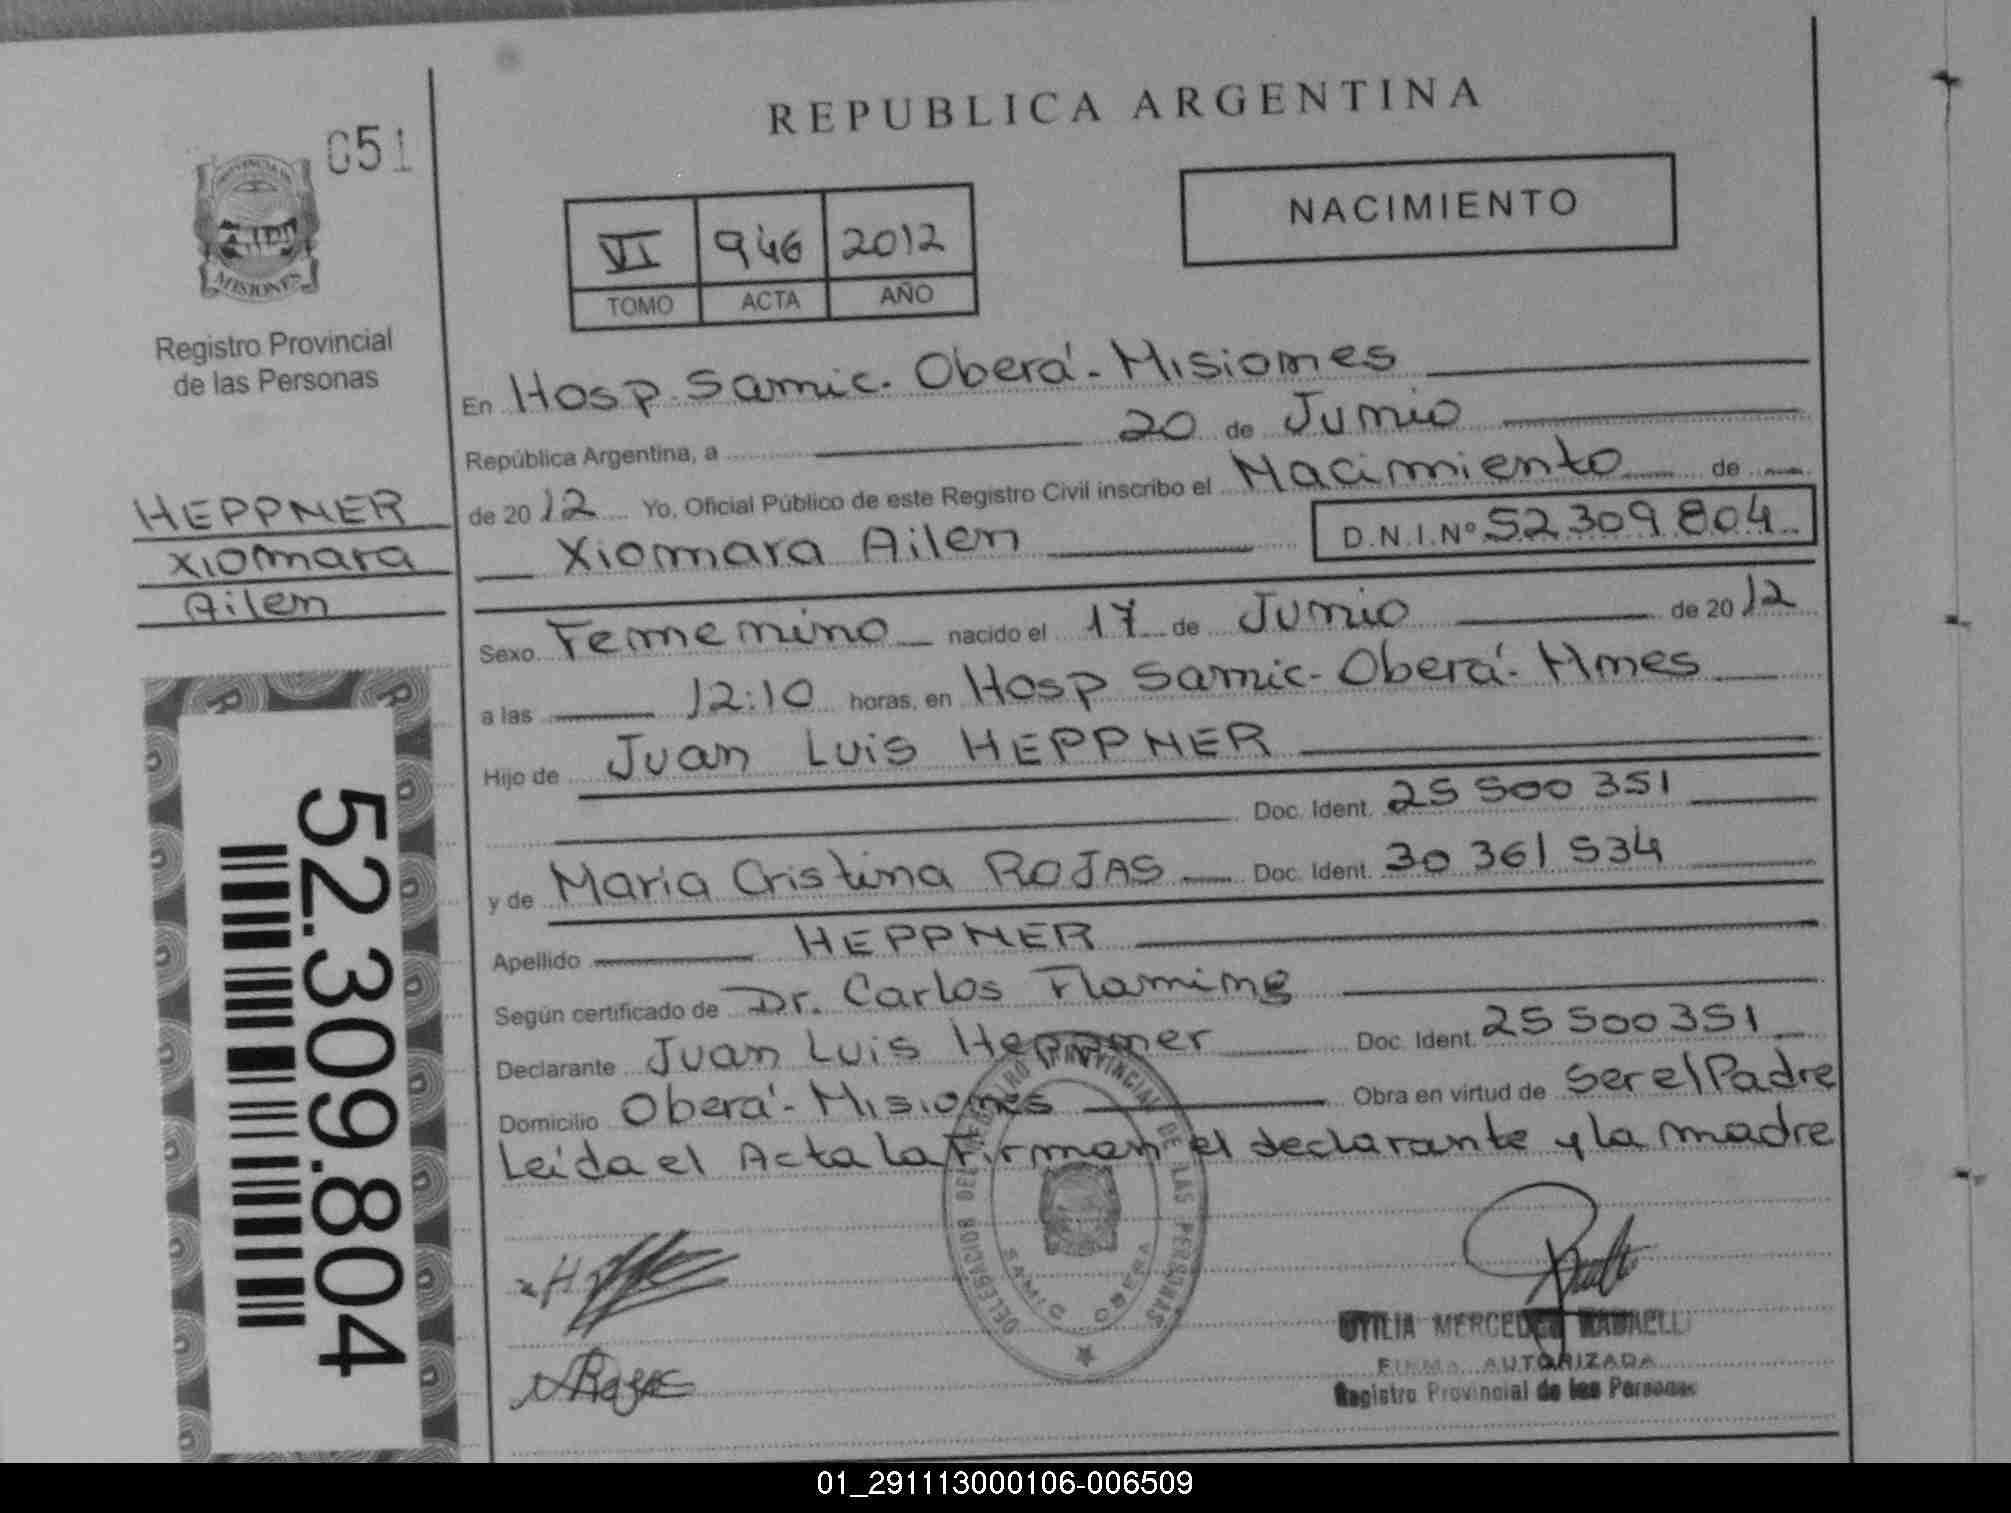 REPUBLICA ARGENTINA
051
PROVINCIA DE
MISIONES
Registro Provincial
de las Personas
VI 946 2012
TOMO ACTA AÑO
NACIMIENTO
En Hosp. Samic. Oberá - Misiones
República Argentina, a 20 de Junio
de 2012 Yo, Oficial Público de este Registro Civil inscribo el Nacimiento de
Xiomara Ailen D.N.I.Nº 52 309 804
HEPPNER
Xiomara
Ailen
Sexo Femenino nacido el 17 de Junio de 2012
a las 12:10 horas, en Hosp Samic - Oberá - Mnes
Hijo de Juan Luis HEPPNER
Doc. Ident. 25 500 351
y de Maria Cristina ROJAS Doc. Ident. 30 361 534
Apellido HEPPNER
Según certificado de Dr. Carlos Flaming
Declarante Juan Luis Heppner Doc. Ident. 25 500 351
Domicilio Oberá - Misiones Obra en virtud de ser el Padre
Leida el Acta la Firman el declarante y la madre
52.309.804
DELEGACION DEL REGISTRO PROVINCIAL DE LAS PERSONAS
SAMIC OBERA
MERCEDES
FIRMA AUTORIZADA
Registro Provincial de las Personas
01_291113000106-006509